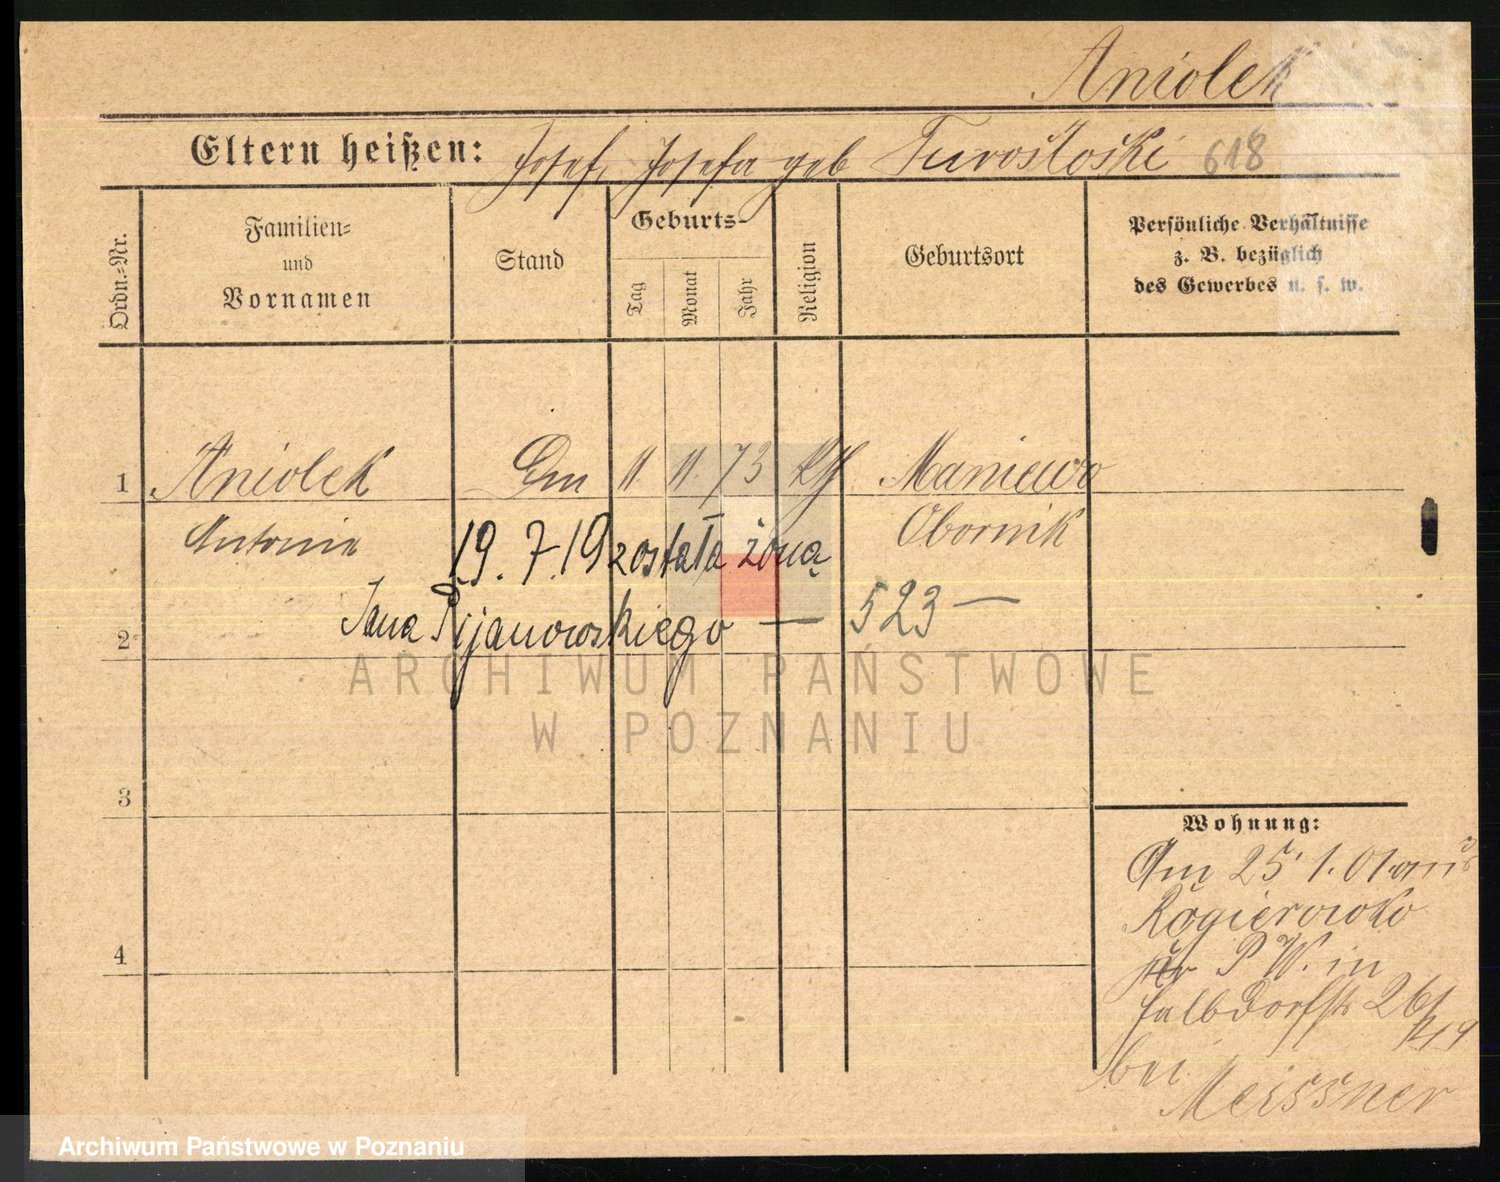 Aniolek
Eltern heißen: Josef, Josefa geb Turostoski 618
Ordn.=Nr.
Familien=
und
Vornamen
Stand
Geburts-
Tag
Monat
Jahr
Religion
Geburtsort
Persönliche Verhältnisse
z. B. bezüglich
des Gewerbes u. s. w.
1 Aniolek 11. 11. 73 Maniewo
Antonia Obornik
19. 7. 19 została żoną
2 Jana Pijanowskiego — 523 —
3
4
Wohnung:
Am 25. 1. 01. aus
P. W. in
26/
bei
Meissner
ARCHIWUM PAŃSTWOWE
W POZNANIU
Archiwum Państwowe w Poznaniu